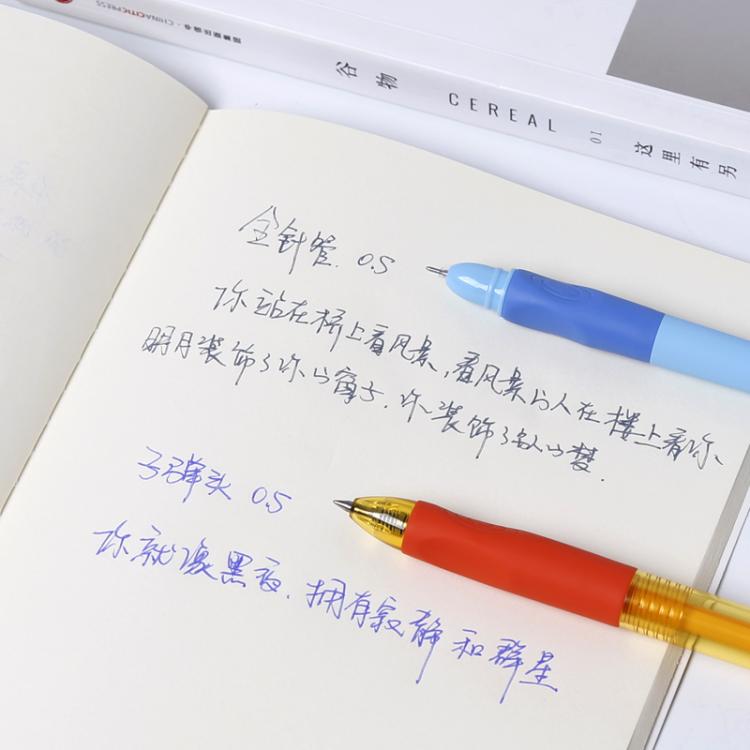 中信出版集团·CHINACITICPRESS
谷物 CEREAL 01 这里有另
全针管 0.5
你站在桥上看风景,看风景的人在楼上看你、
明月装饰了你的窗子.你装饰了别人的梦.
子弹头 0.5
你就像黑夜.拥有寂静和群星